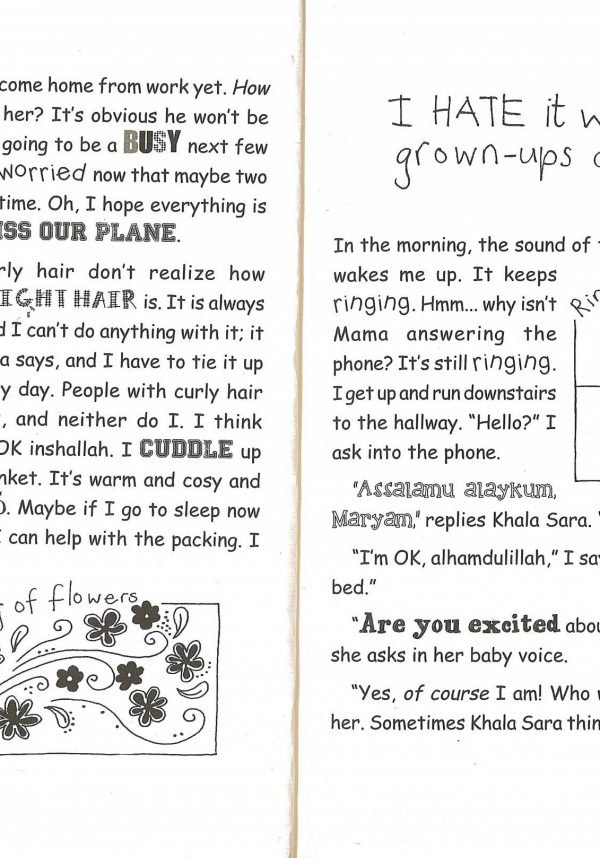 come home from work yet. How
her? It's obvious he won't be
going to be a BUSY next few
worried now that maybe two
time. Oh, I hope everything is
ISS OUR PLANE.
rly hair don't realize how
IGHT HAIR is. It is always
I can't do anything with it; it
a says, and I have to tie it up
y day. People with curly hair
, and neither do I. I think
OK inshallah. I CUDDLE up
nket. It's warm and cosy and
. Maybe if I go to sleep now
I can help with the packing. I
of flowers
I HATE it w
grown-ups
In the morning, the sound of
wakes me up. It keeps
ringing. Hmm... why isn't
Mama answering the
phone? It's still ringing.
I get up and run downstairs
to the hallway. "Hello?" I
ask into the phone.
Rin
"Assalamu alaykum,
Maryam," replies Khala Sara.
"I'm OK, alhamdulillah," I sa
bed."
"Are you excited abou
she asks in her baby voice.
"Yes, of course I am! Who
her. Sometimes Khala Sara thin